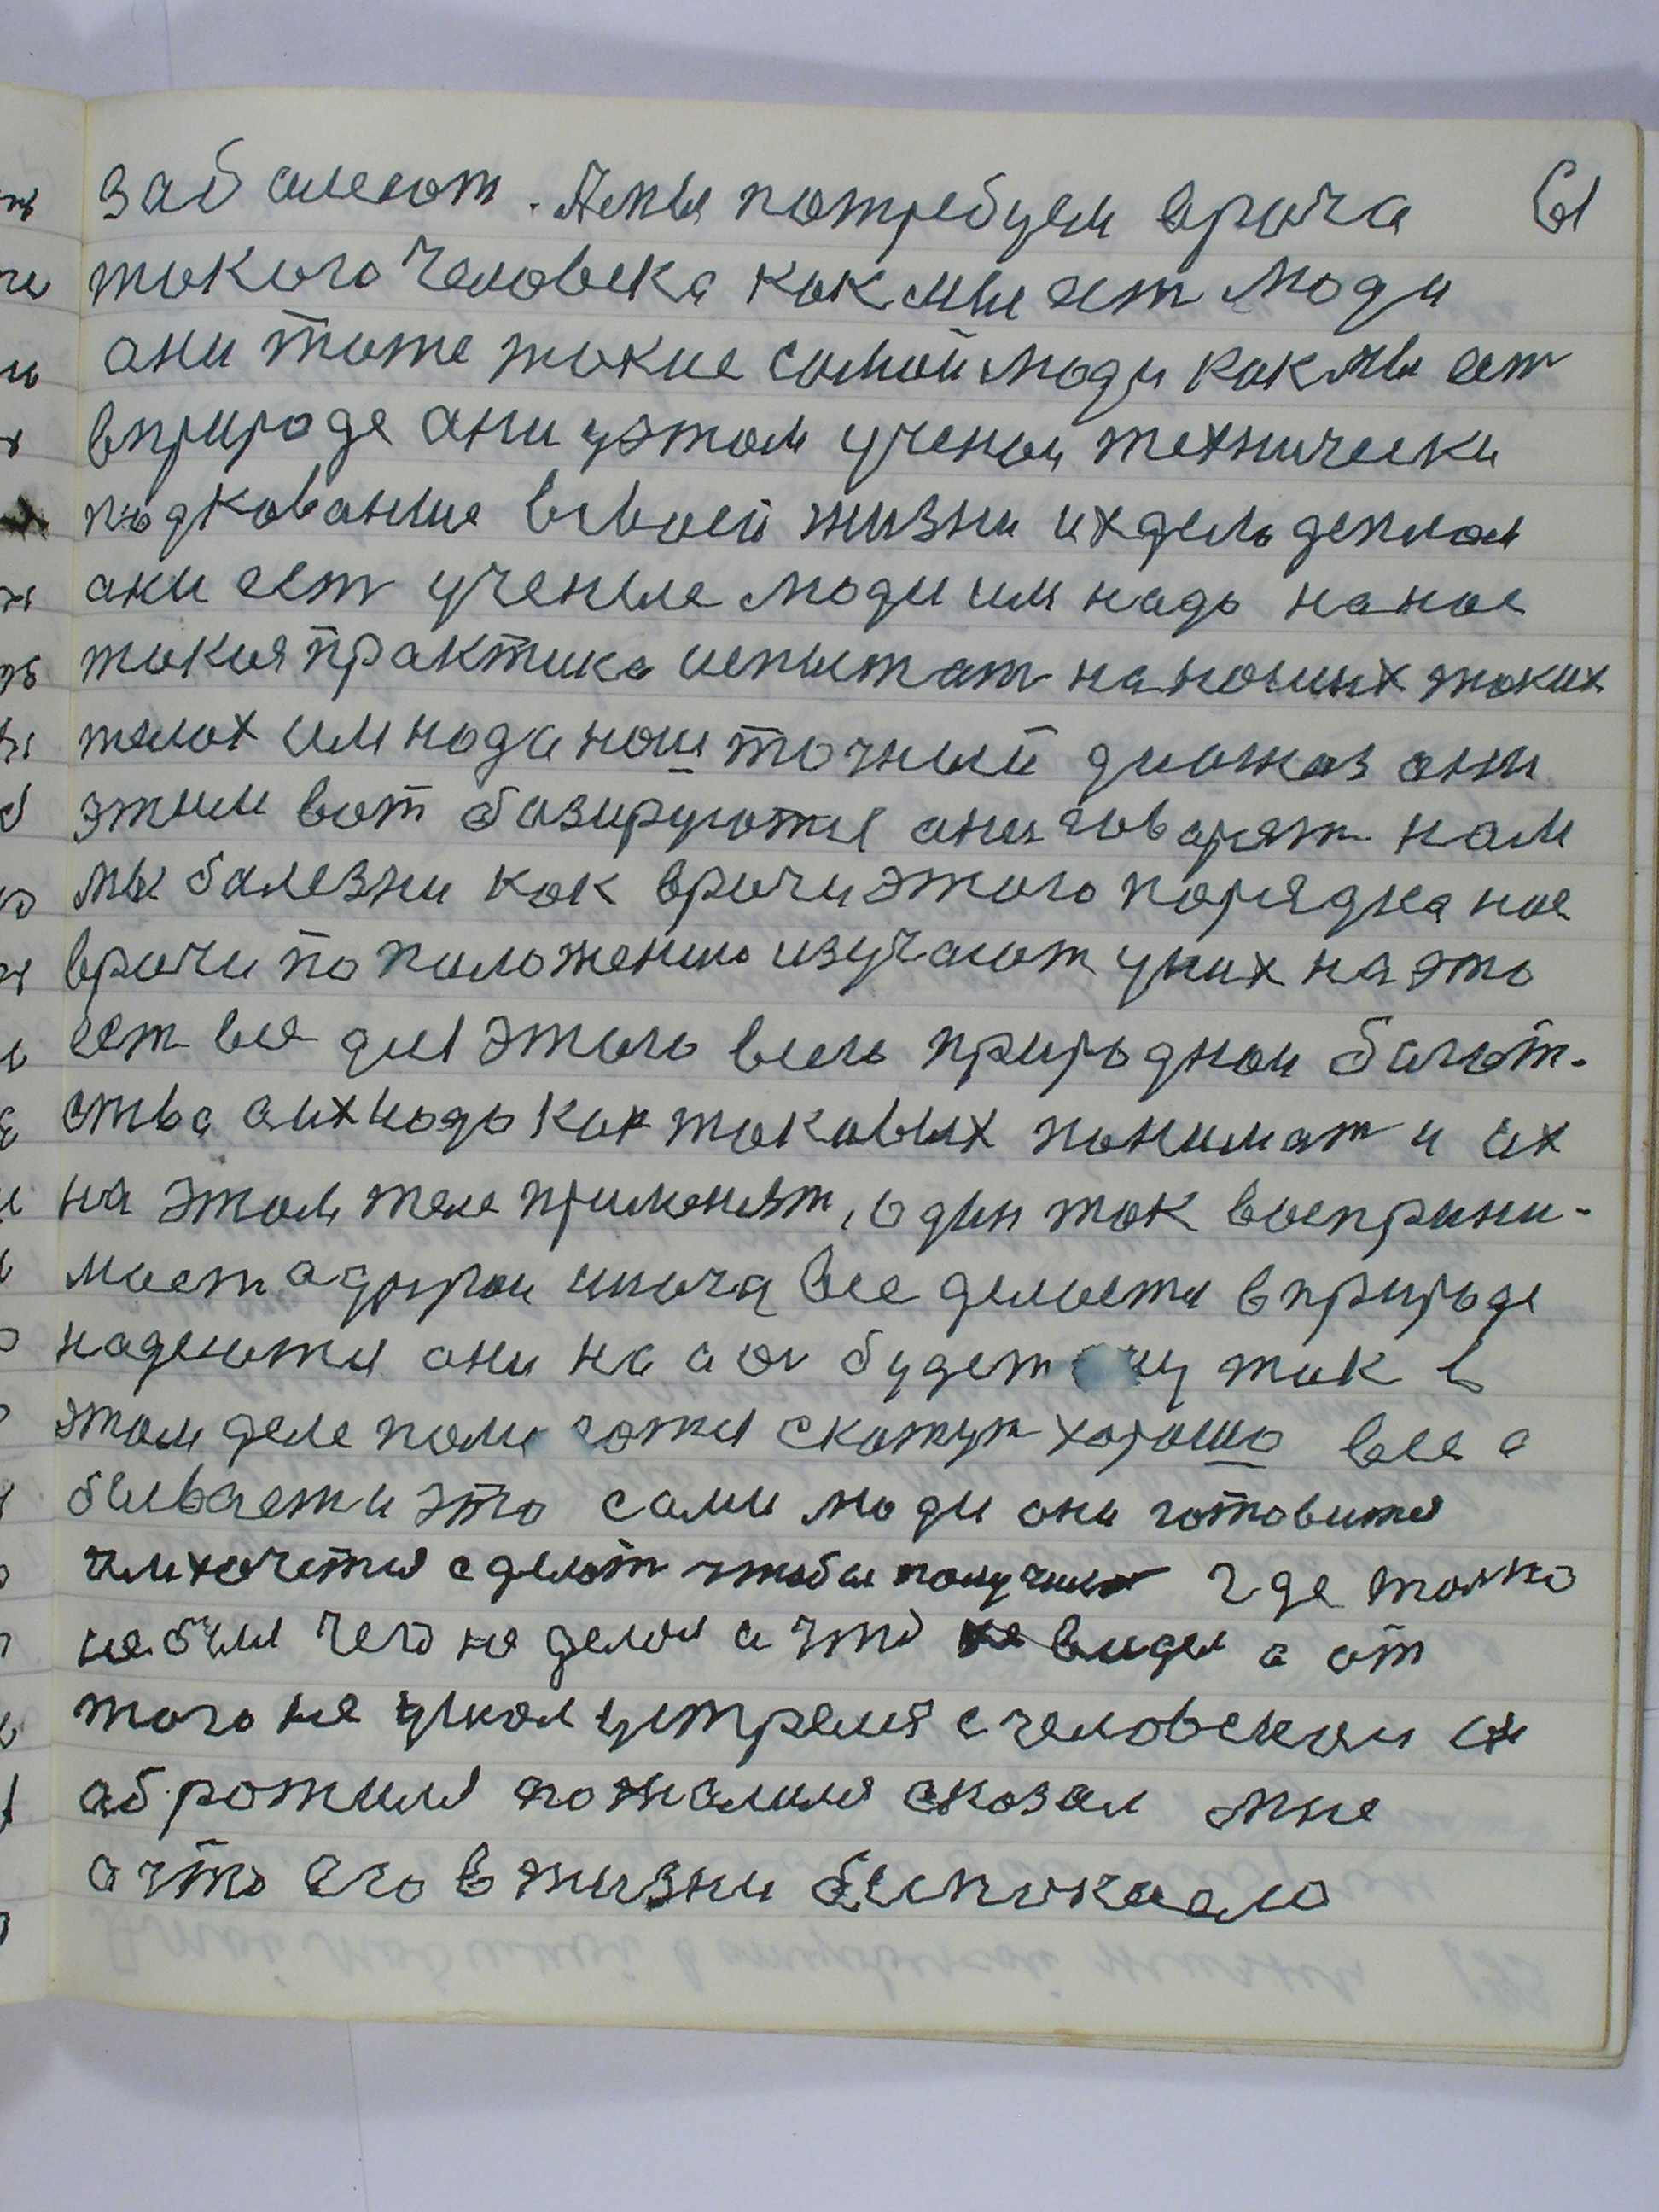 забалеют. Амы потребуем врача 61
токого человека как мы ест люди
ани тоже токие самои люди как мы ест
вприроде ани уэтом ученои технически
подкованыие всвоей жизни ихдель деплом
ани ест ученыие люди им надо нанас
токия практика испытат нанаших токих
телах им нада наш точный диогноз ани
этим вот базируются ани гаварят нам
мы балезни как врачи этого порядка нас
врачи по паложению изучают уних на это
ест все для этого всего природнои багот-
ства аихнадо как токавых понимат и их
на этом теле применят, один так восприни-
мает адругои иначе все делается вприроде
надеются они на авось будет так в
этом деле палучаются скажут хорошо все а
бывает и это сами люди они готовится
им хочется сделат чтобы получит где толко
не был чего не делал а что не видел а от
того не ушол устрелся счеловеком он
абротился пожалился сказал мне
а что его в жизни беспокаело